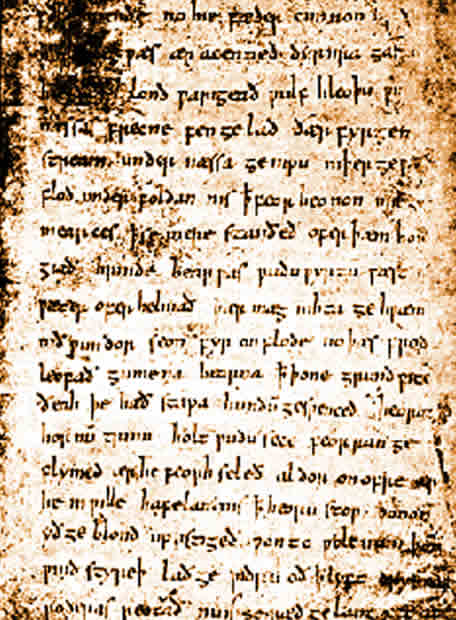 no hie fæder cunnon
wæs ær acenned dyrnra gas
lond warigeað wulf hleoþu wi
næssas frecne fen ge lad ðær fyrgen
stream under næssa genipu niþer gewi
flod under foldan nis ꝥ feor heonon mil
mearces ꝥ se mere standeð ofer þæm hon
giað hrinde bearwas wudu wyrtum fæst
wæter ofer helmað þær mæg nihta ge hwæm
nið wundor seon fyr on flode no þæs frod
leofað gumena bearna ꝥ þone grund wite
ðeah þe hæð stapa hundū geswenced heorot
hornū trum holt wudu sece feorran ge
flymed ær he feorh seleð aldor on ofre ær
he in wille hafelan nis ꝥ heoru stow þonon
yð ge blond up astigeð won to wolcnum þon̄
wind styreþ lað ge widru oð ꝥ lyft
roderas reotað nu is se ræd gelang